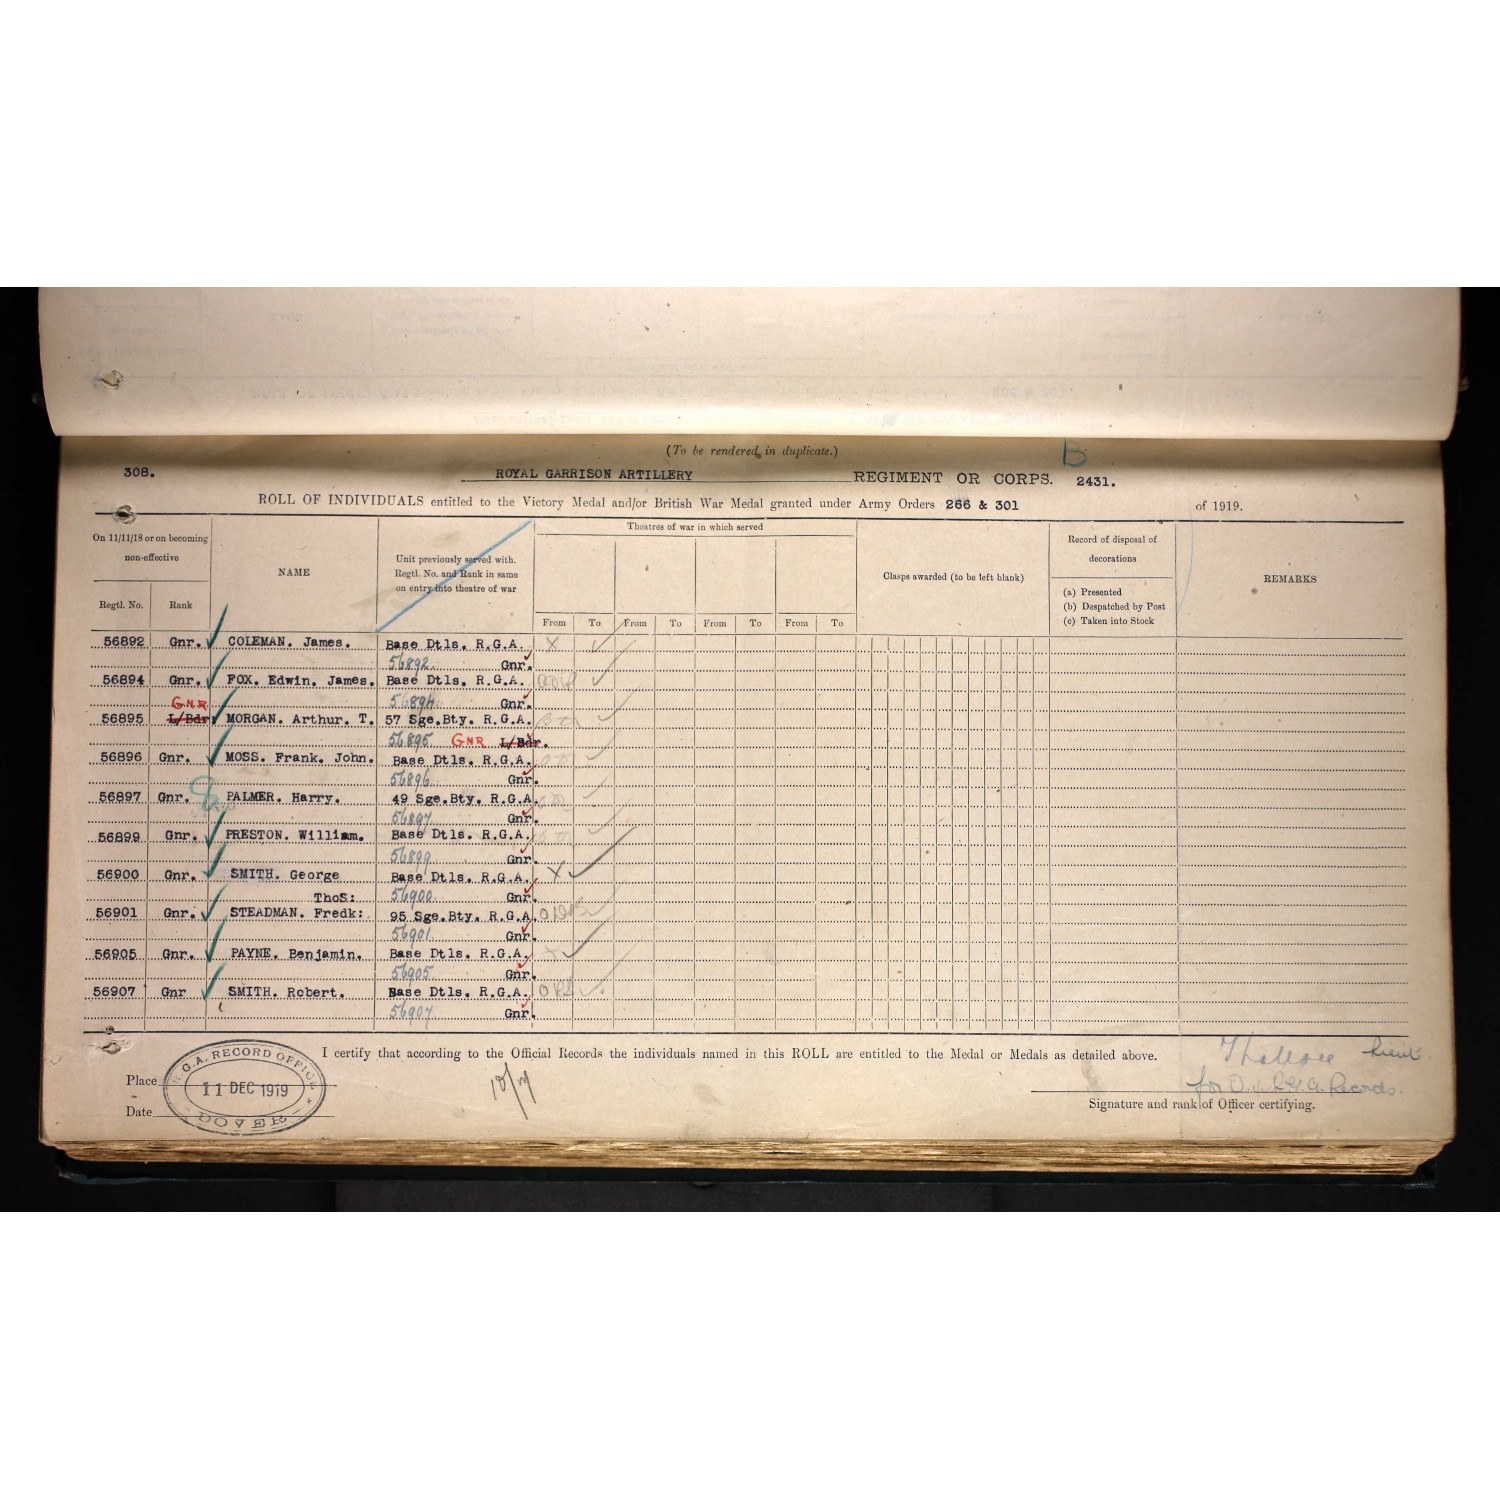 (To be rendered in duplicate.)
B
308. ROYAL GARRISON ARTILLERY REGIMENT OR CORPS. 2431.
ROLL OF INDIVIDUALS entitled to the Victory Medal and/or British War Medal granted under Army Orders 266 & 301 of 1919.
On 11/11/18 or on becoming non-effective
Regtl. No. Rank
NAME
Unit previously served with.
Regtl. No. and Rank in same
on entry into theatre of war
Theatres of war in which served
From To From To From To From To
Clasps awarded (to be left blank)
Record of disposal of
decorations
(a) Presented
(b) Despatched by Post
(c) Taken into Stock
REMARKS
56892 Gnr. COLEMAN. James. Base Dtls. R.G.A. X
56892 Gnr.
56894 Gnr. FOX. Edwin. James. Base Dtls. R.G.A.
GNR 56894 Gnr.
56895 L/Bdr MORGAN. Arthur. T. 57 Sge.Bty. R.G.A.
56895 GNR L/Bdr.
56896 Gnr. MOSS. Frank. John. Base Dtls. R.G.A.
56896 Gnr.
56897 Gnr. PALMER. Harry. 49 Sge.Bty. R.G.A.
56897 Gnr.
56899 Gnr. PRESTON. William. Base Dtls. R.G.A.
56899 Gnr.
56900 Gnr. SMITH. George Base Dtls. R.G.A. X
Thos: 56900 Gnr.
56901 Gnr. STEADMAN. Fredk: 95 Sge.Bty. R.G.A.
56901 Gnr.
56905 Gnr. PAYNE. Benjamin. Base Dtls. R.G.A.
56905 Gnr.
56907 Gnr SMITH. Robert. Base Dtls. R.G.A.
56907 Gnr.
I certify that according to the Official Records the individuals named in this ROLL are entitled to the Medal or Medals as detailed above.
Lieut.
for O. i/c R.G.A. Records.
Signature and rank of Officer certifying.
Place
Date
R.G.A. RECORD OFFICE
11 DEC 1919
DOVER